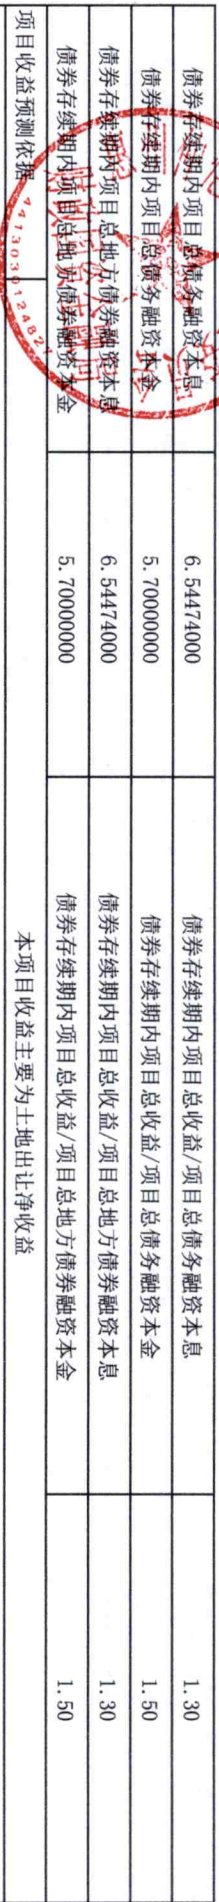 债券存续期内项目总债务融资本息 6.54474000 债券存续期内项目总收益/项目总债务融资本息 1.30
债券存续期内项目总债务融资本金 5.70000000 债券存续期内项目总收益/项目总债务融资本金 1.50
债券存续期内项目总地方债券融资本息 6.54474000 债券存续期内项目总收益/项目总地方债券融资本息 1.30
债券存续期内项目总地方债券融资本金 5.70000000 债券存续期内项目总收益/项目总地方债券融资本金 1.50
项目收益预测依据 本项目收益主要为土地出让净收益